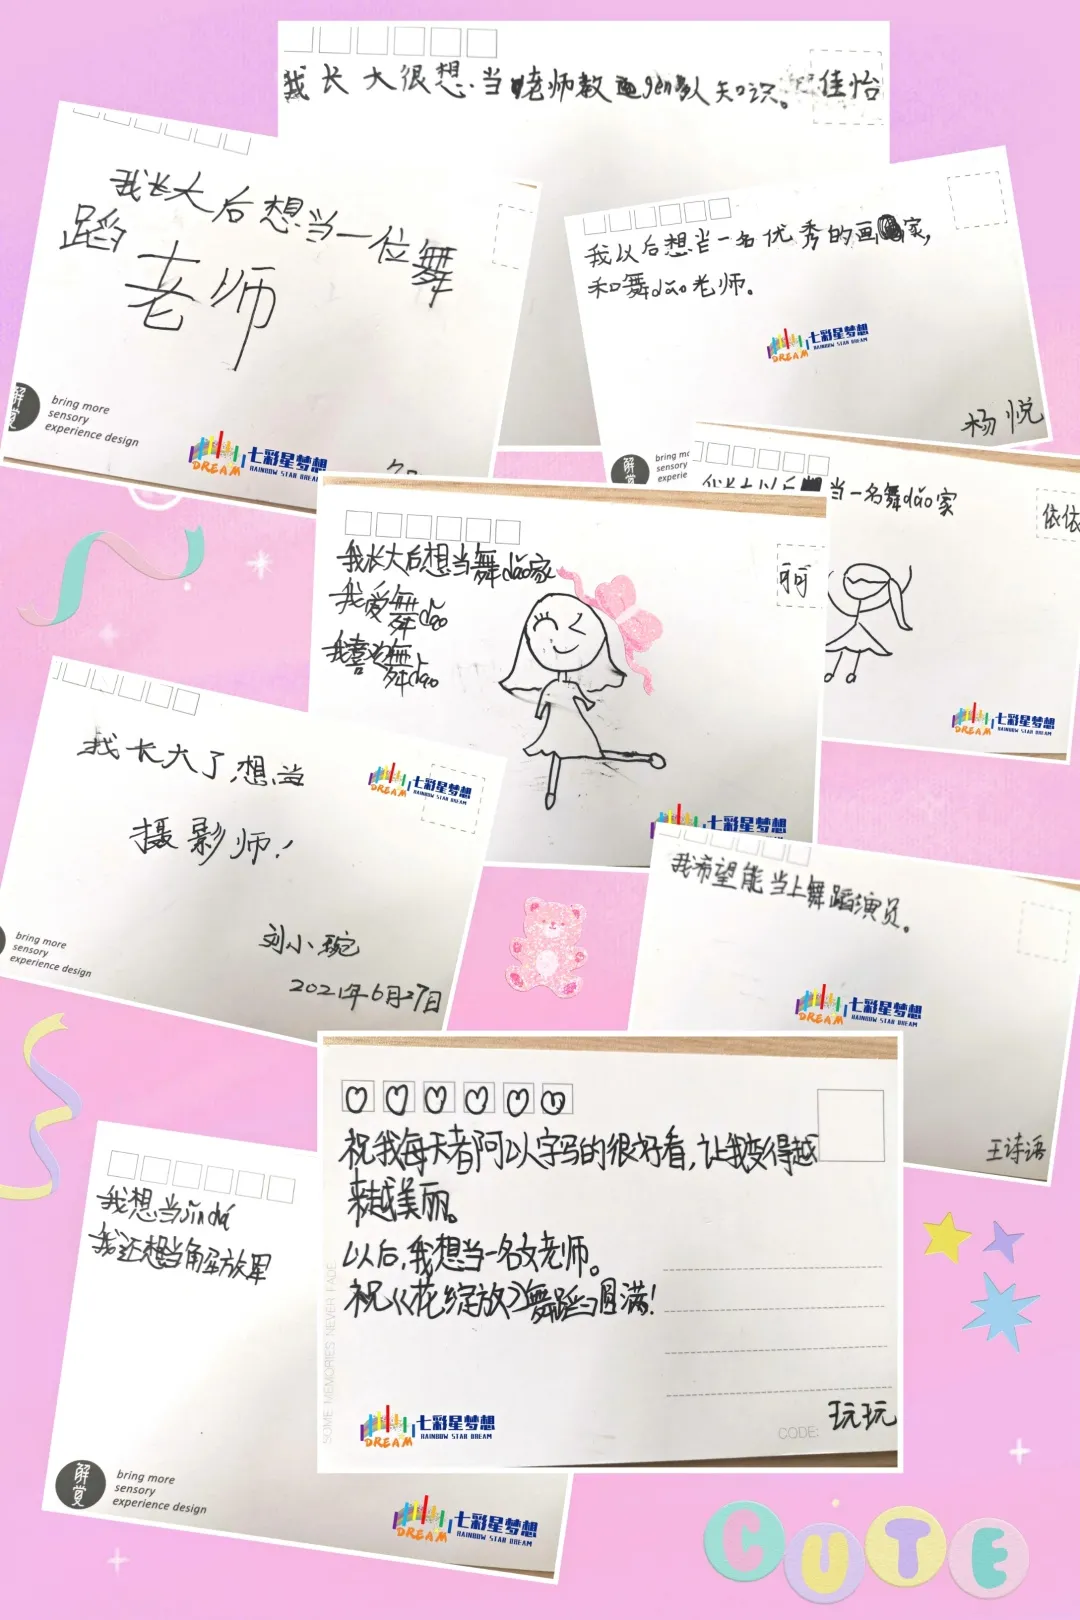 我长大很想当老师教更gen多人知识。
佳怡
我长大后想当一位舞
蹈
老师
bring more
sensory
experience design
DREAM
七彩星梦想
RAINBOW STAR DREAM
我以后想当一名优秀的画家,
和舞dǎo老师。
DREAM
七彩星梦想
RAINBOW STAR DREAM
杨悦
解
bring mo
sensory
experie
当一名舞dǎo家
依依
DREAM
七彩星梦想
RAINBOW STAR DREAM
我长大后想当舞dǎo家
我爱舞dǎo
我喜欢舞dǎo
DREAM
七彩星梦想
我长大了想当
摄影师!
DREAM
七彩星梦想
RAINBOW STAR DREAM
刘小琬
2021年6月27日
bring more
sensory
experience design
我希望能当上舞蹈演员。
DREAM
七彩星梦想
RAINBOW STAR DREAM
王诗语
祝我每天都可以字写的很好看,让我变得越
来越美丽。
以后,我想当一名女老师。
祝《花绽放》舞蹈圆满!
SOME MEMORIES NEVER FADE
DREAM
七彩星梦想
RAINBOW STAR DREAM
CODE:
玩玩
我想当jǐn chá
我还想当解放军
解
bring more
sensory
experience design
DREAM
七彩星梦想
RAINBOW STAR DREAM
CUTE